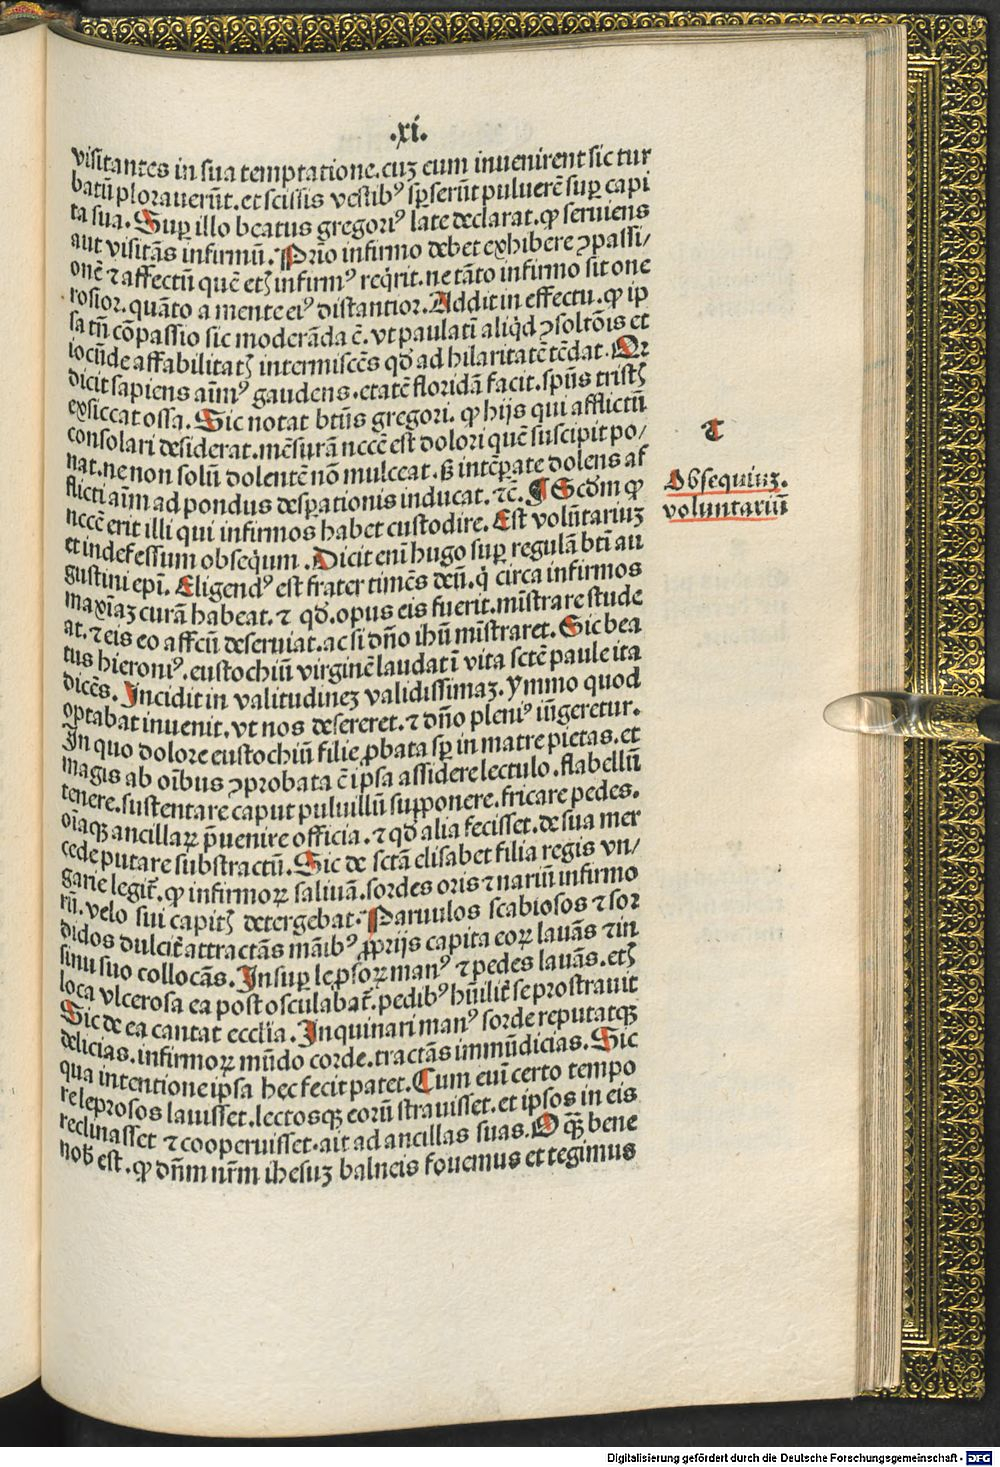 .xi.
visitantes in sua temptatione. cuꝫ eum inuenirent sic tur
batū plorauerūt. et scissis vestibꝰ sꝑserūt puluerē suꝑ capi
ta sua. Suꝑ illo beatus gregoriꝰ late declarat. ꝙ seruiens
aut visitās infirmū. Prīo infirmo debet exhibere ꝯpassi/
onē ⁊ affectū quē etꝭ infirmꝰ reqͥrit. ne tāto infirmo sit one
rosior. quāto a mente eiꝰ distantior. Addit in effectu. ꝙ ip
sa tn̄ cōpassio sic moderāda ē. vt paulatī aliqͥd ꝯsoltōis et
iocūde affabilitatꝭ intermiscēs qd̄ ad hilaritatē tēdat. Qꝛ
dicit sapiens aīmꝰ gaudens. etatē floridā facit. spūs tristꝭ
exsiccat ossa. Sic notat btūs gregori. ꝙ hijs qui afflictū
consolari desiderat. mēsurā nccē est dolori quē suscipit po/
nat. ne non solū dolentē nō mulceat. sꝫ intēꝑate dolens af
flicti aīm ad pondus desꝑationis inducat. ⁊cē. ¶ Scd̄m ꝙ
nccē erit illi qui infirmos habet custodire. Est volūtariuꝫ
et indefessum obseqͥum. Dicit enī hugo suꝑ regulā btī au
gustini ep̄i. Eligendꝰ est frater timēs deū. qͥ circa infirmos
maxīaꝫ curā habeat. ⁊ qd̄. opus eis fuerit. mīstrare stude
at. ⁊ eis eo affcū deseruiat. ac si dn̄o ihū mīstraret. Sic bea
tus hieroniꝰ. eustochiū virginē laudat ī vita sctē paule ita
dicēs. Incidit in valitudineꝫ validissimaꝫ. Ymmo quod
optabat inuenit. vt nos desereret. ⁊ dn̄o pleniꝰ iūgeretur.
In quo dolore eustochiū filie ꝓbata sꝑ in matre pietas. et
magis ab oībus ꝯprobata ē ipsa assidere lectulo. flabellū
tenere. sustentare caput puluillū supponere. fricare pedes.
oīaqꝫ ancillaꝝ p̄uenire officia. ⁊ qd̄ alia fecisset. de sua mer
cede putare substractū. Sic de sctā elisabet filia regis vn/
garie legit᷑. ꝙ infirmoꝝ saliuā. sordes oris ⁊ nariū infirmo
rū. velo sui capitꝭ detergebat. Paruulos scabiosos ⁊ sor
didos dulcit᷑ attractās māibꝰ ꝓprijs capita eoꝝ lauās ⁊ in
sinu suo collocās. Insuꝑ lepsoꝝ manꝰ ⁊ pedes lauās. etꝭ
loca vlcerosa ea post osculabat᷑. pedibꝰ hūilit᷑ se prostrauit
Sic de ea cantat eccl̄ia. Inquinari manꝰ sorde reputatqꝫ
delicias. infirmoꝝ mūdo corde. tractās immūdicias. Sic
qua intentione ipsa hec fecit patet. Cum enī certo tempo
re leprosos lauisset. lectosqꝫ eorū strauisset. et ipsos in eis
reclinasset ⁊ cooperuisset. ait ad ancillas suas. O qꝫ̄ bene
nob̄ est. ꝙ dn̄m nr̄m ihesuꝫ balneis fouemus et tegimus
Obsequiuꝫ.
voluntariū
Digitalisierung gefördert durch die Deutsche Forschungsgemeinschaft - DFG